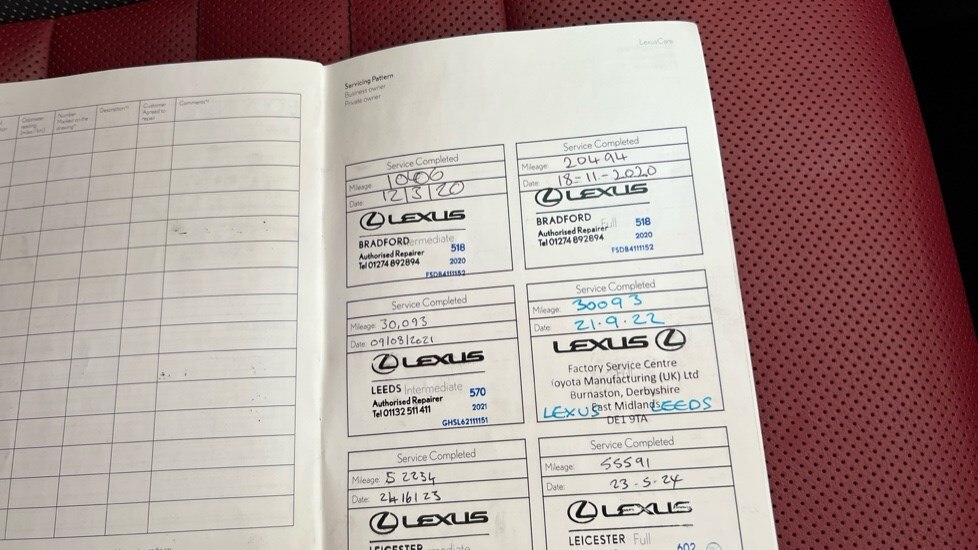 LexusCare
Servicing Pattern
Business owner
Private owner
Odometer reading
Number Marked on the drawing*
Description*)
Customer Agreed to repair
Comments*)
Service Completed
Mileage:
Date: 12/3/20
LEXUS
BRADFORD Intermediate
Authorised Repairer 518
Tel 01274 892894 2020
FSDB4111152
Service Completed
Mileage: 20494
Date: 18-11-2020
LEXUS
BRADFORD Full
Authorised Repairer 518
Tel 01274 892894 2020
FSDB4111152
Service Completed
Mileage: 30,093
Date: 09/08/2021
LEXUS
LEEDS Intermediate
Authorised Repairer 570
Tel 01132 511 411 2021
GHSL62111151
Service Completed
Mileage: 30093
Date: 21.9.22
LEXUS
Factory Service Centre
Toyota Manufacturing (UK) Ltd
Burnaston, Derbyshire
East Midlands
LEXUS LEEDS
DE1 9TA
Service Completed
Mileage: 52234
Date: 24/6/23
LEXUS
LEICESTER Intermediate
Service Completed
Mileage: 55591
Date: 23-5-24
LEXUS
LEICESTER Full
602